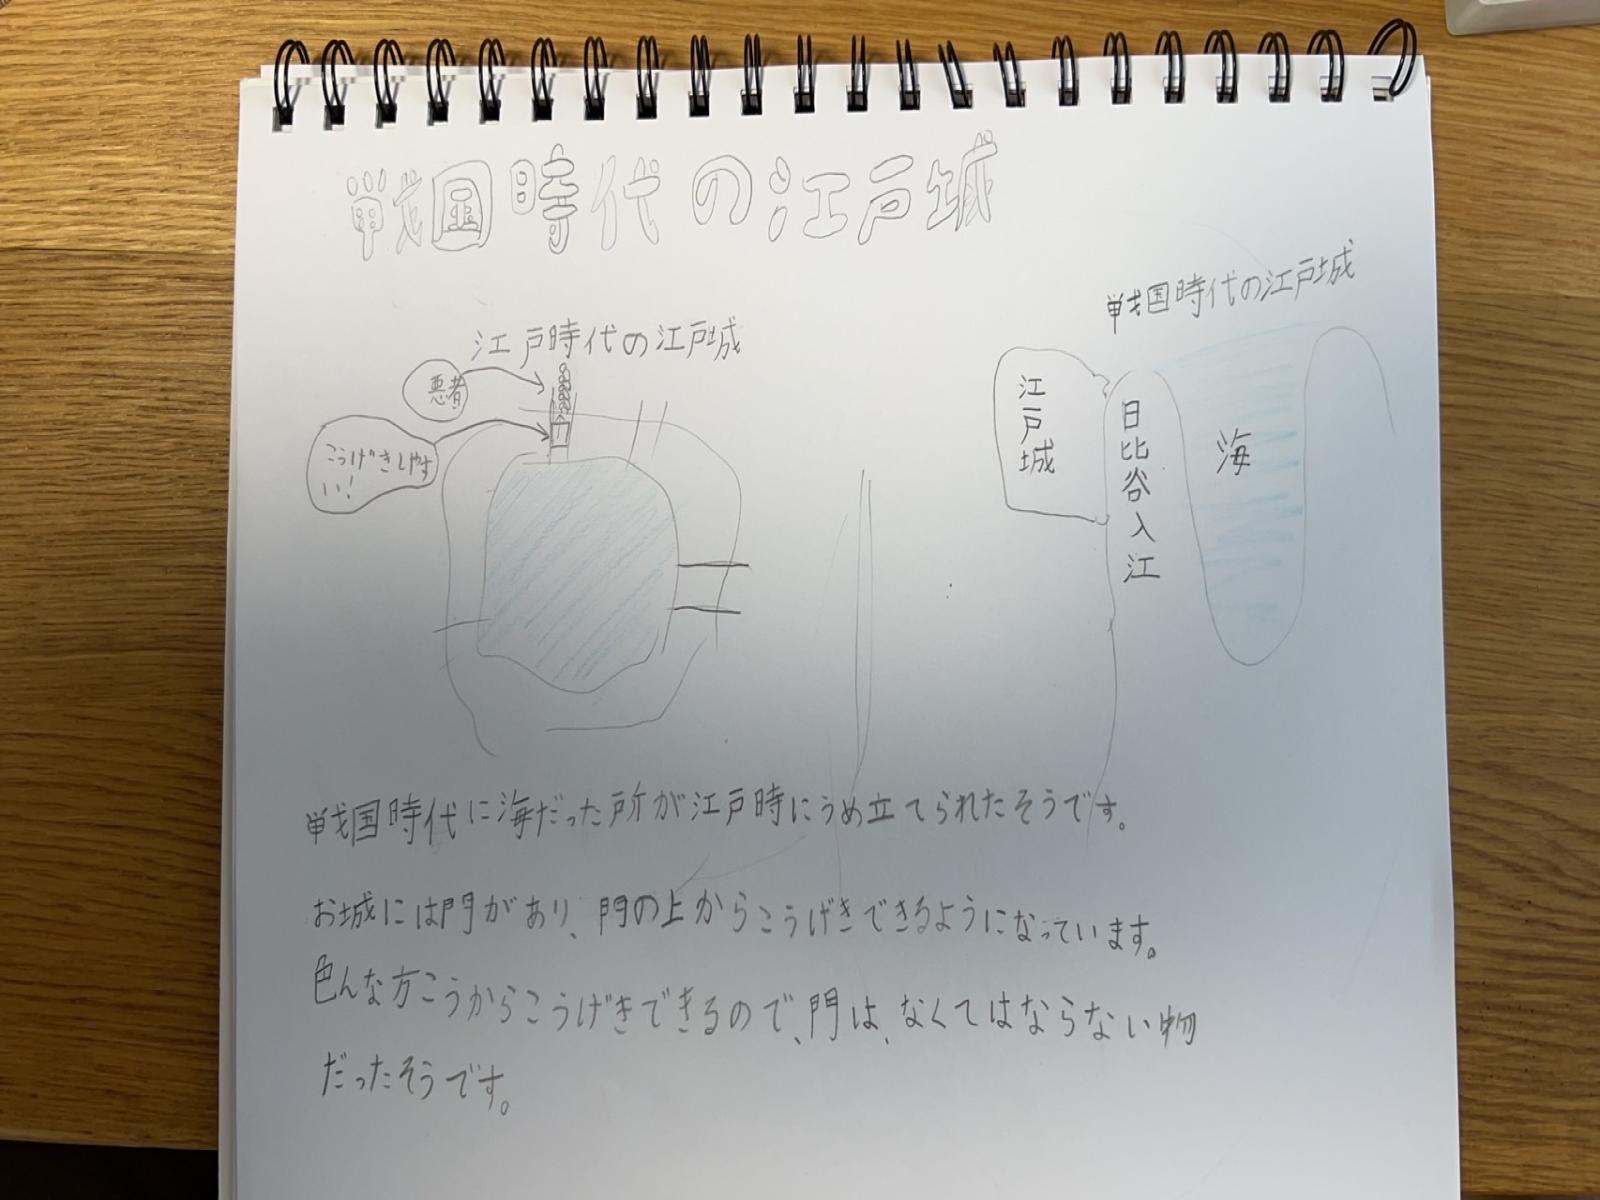 戦国時代の江戸城
江戸時代の江戸城
悪者
こうげきしやす
い!
戦国時代の江戸城
江戸城
日比谷入江
海
戦国時代に海だった所が江戸時にうめ立てられたそうです。
お城には門があり、門の上からこうげきできるようになっています。
色んな方こうからこうげきできるので、門は、なくてはならない物
だったそうです。